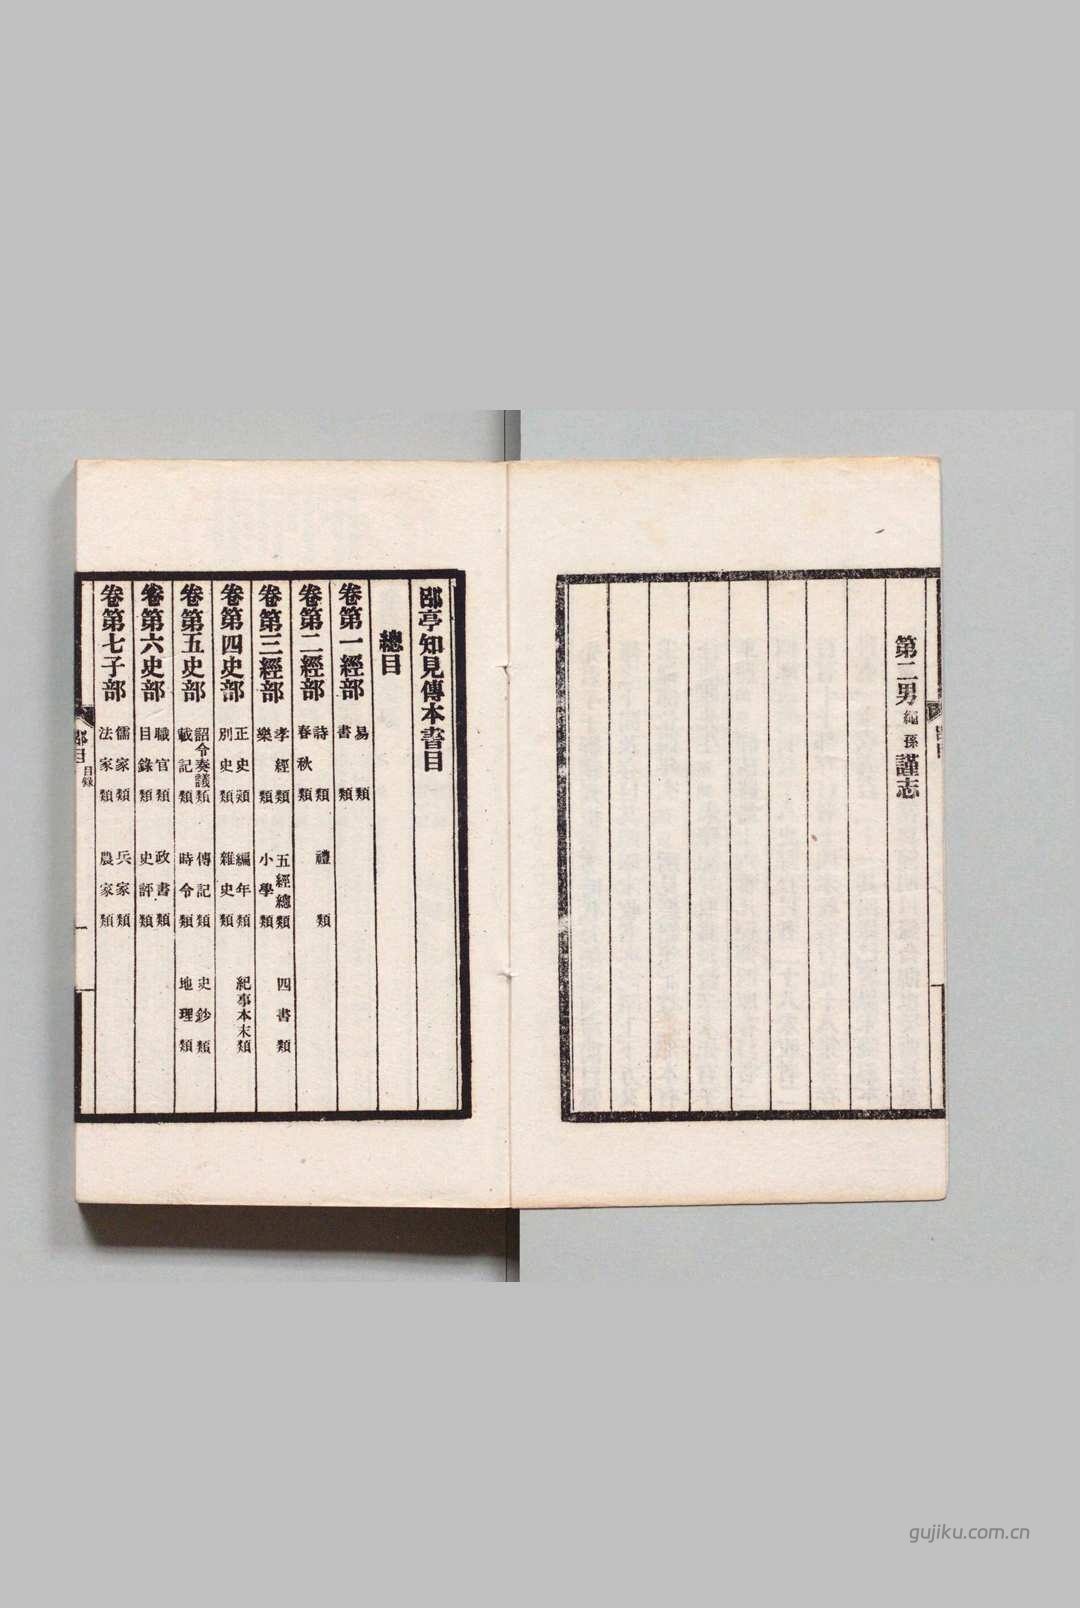 第二男繩孫謹志
郘亭知見傳本書目
總目
卷第一經部 易類 書類
卷第二經部 詩類 禮類 春秋類
卷第三經部 孝經類 五經總類 四書類 樂類 小學類
卷第四史部 正史類 編年類 紀事本末類 別史類 雜史類
卷第五史部 詔令奏議類 傳記類 史鈔類 載記類 時令類 地理類
卷第六史部 職官類 政書類 目錄類 史評類
卷第七子部 儒家類 兵家類 法家類 農家類
郘目 目錄
gujiku.com.cn